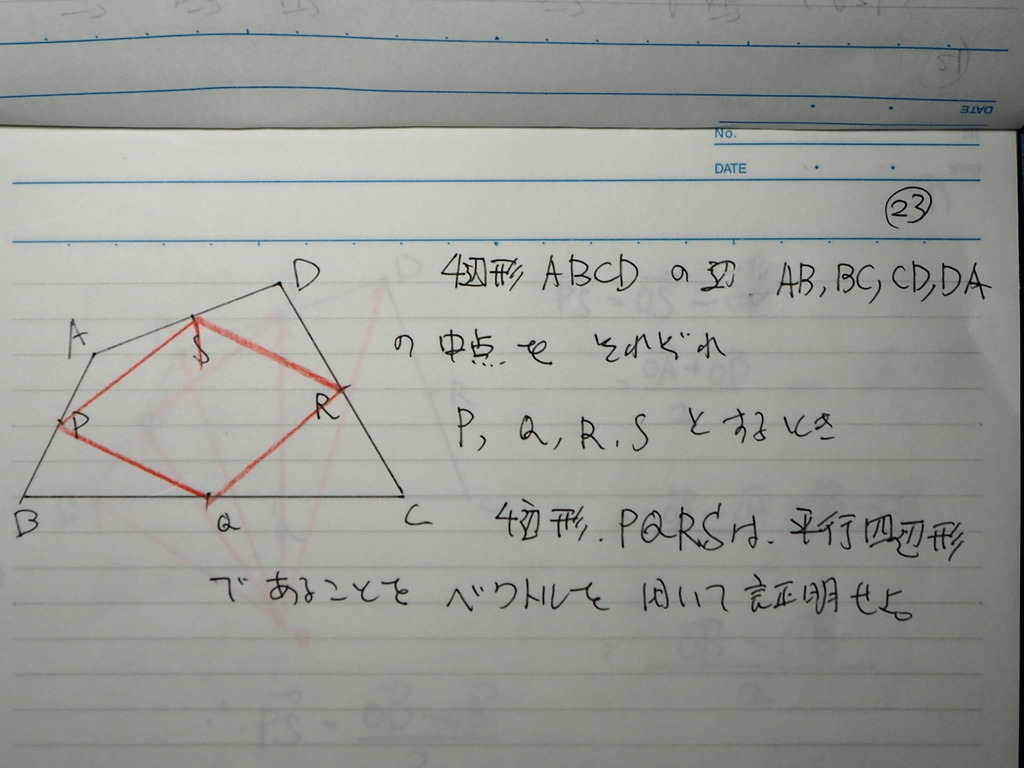 No.
DATE
DATE
23
4辺形 ABCD の辺 AB, BC, CD, DA
の中点を それぞれ
P, Q, R, S とするとき
4辺形 PQRSは、平行四辺形
であることを ベクトルを 用いて証明せよ。
A
D
S
P
R
B
Q
C